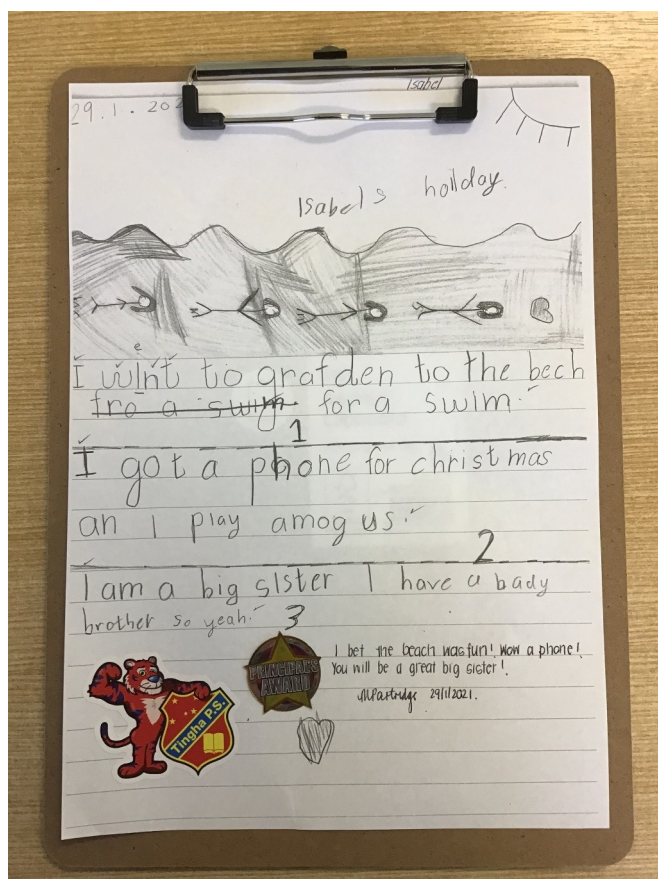 Isabel
29.1.202
Isabels holiday.
e
I wint to grafden to the bech
fro a swim for a swim.
1
I got a phone for christmas
an I play amog us.
2
I am a big sister I have a bady
brother so yeah.
3
PRINCIPAL'S
AWARD
I bet the beach was fun! Wow a phone!
You will be a great big sister!
MPartridge 29/1/2021.
Tingha P.S.